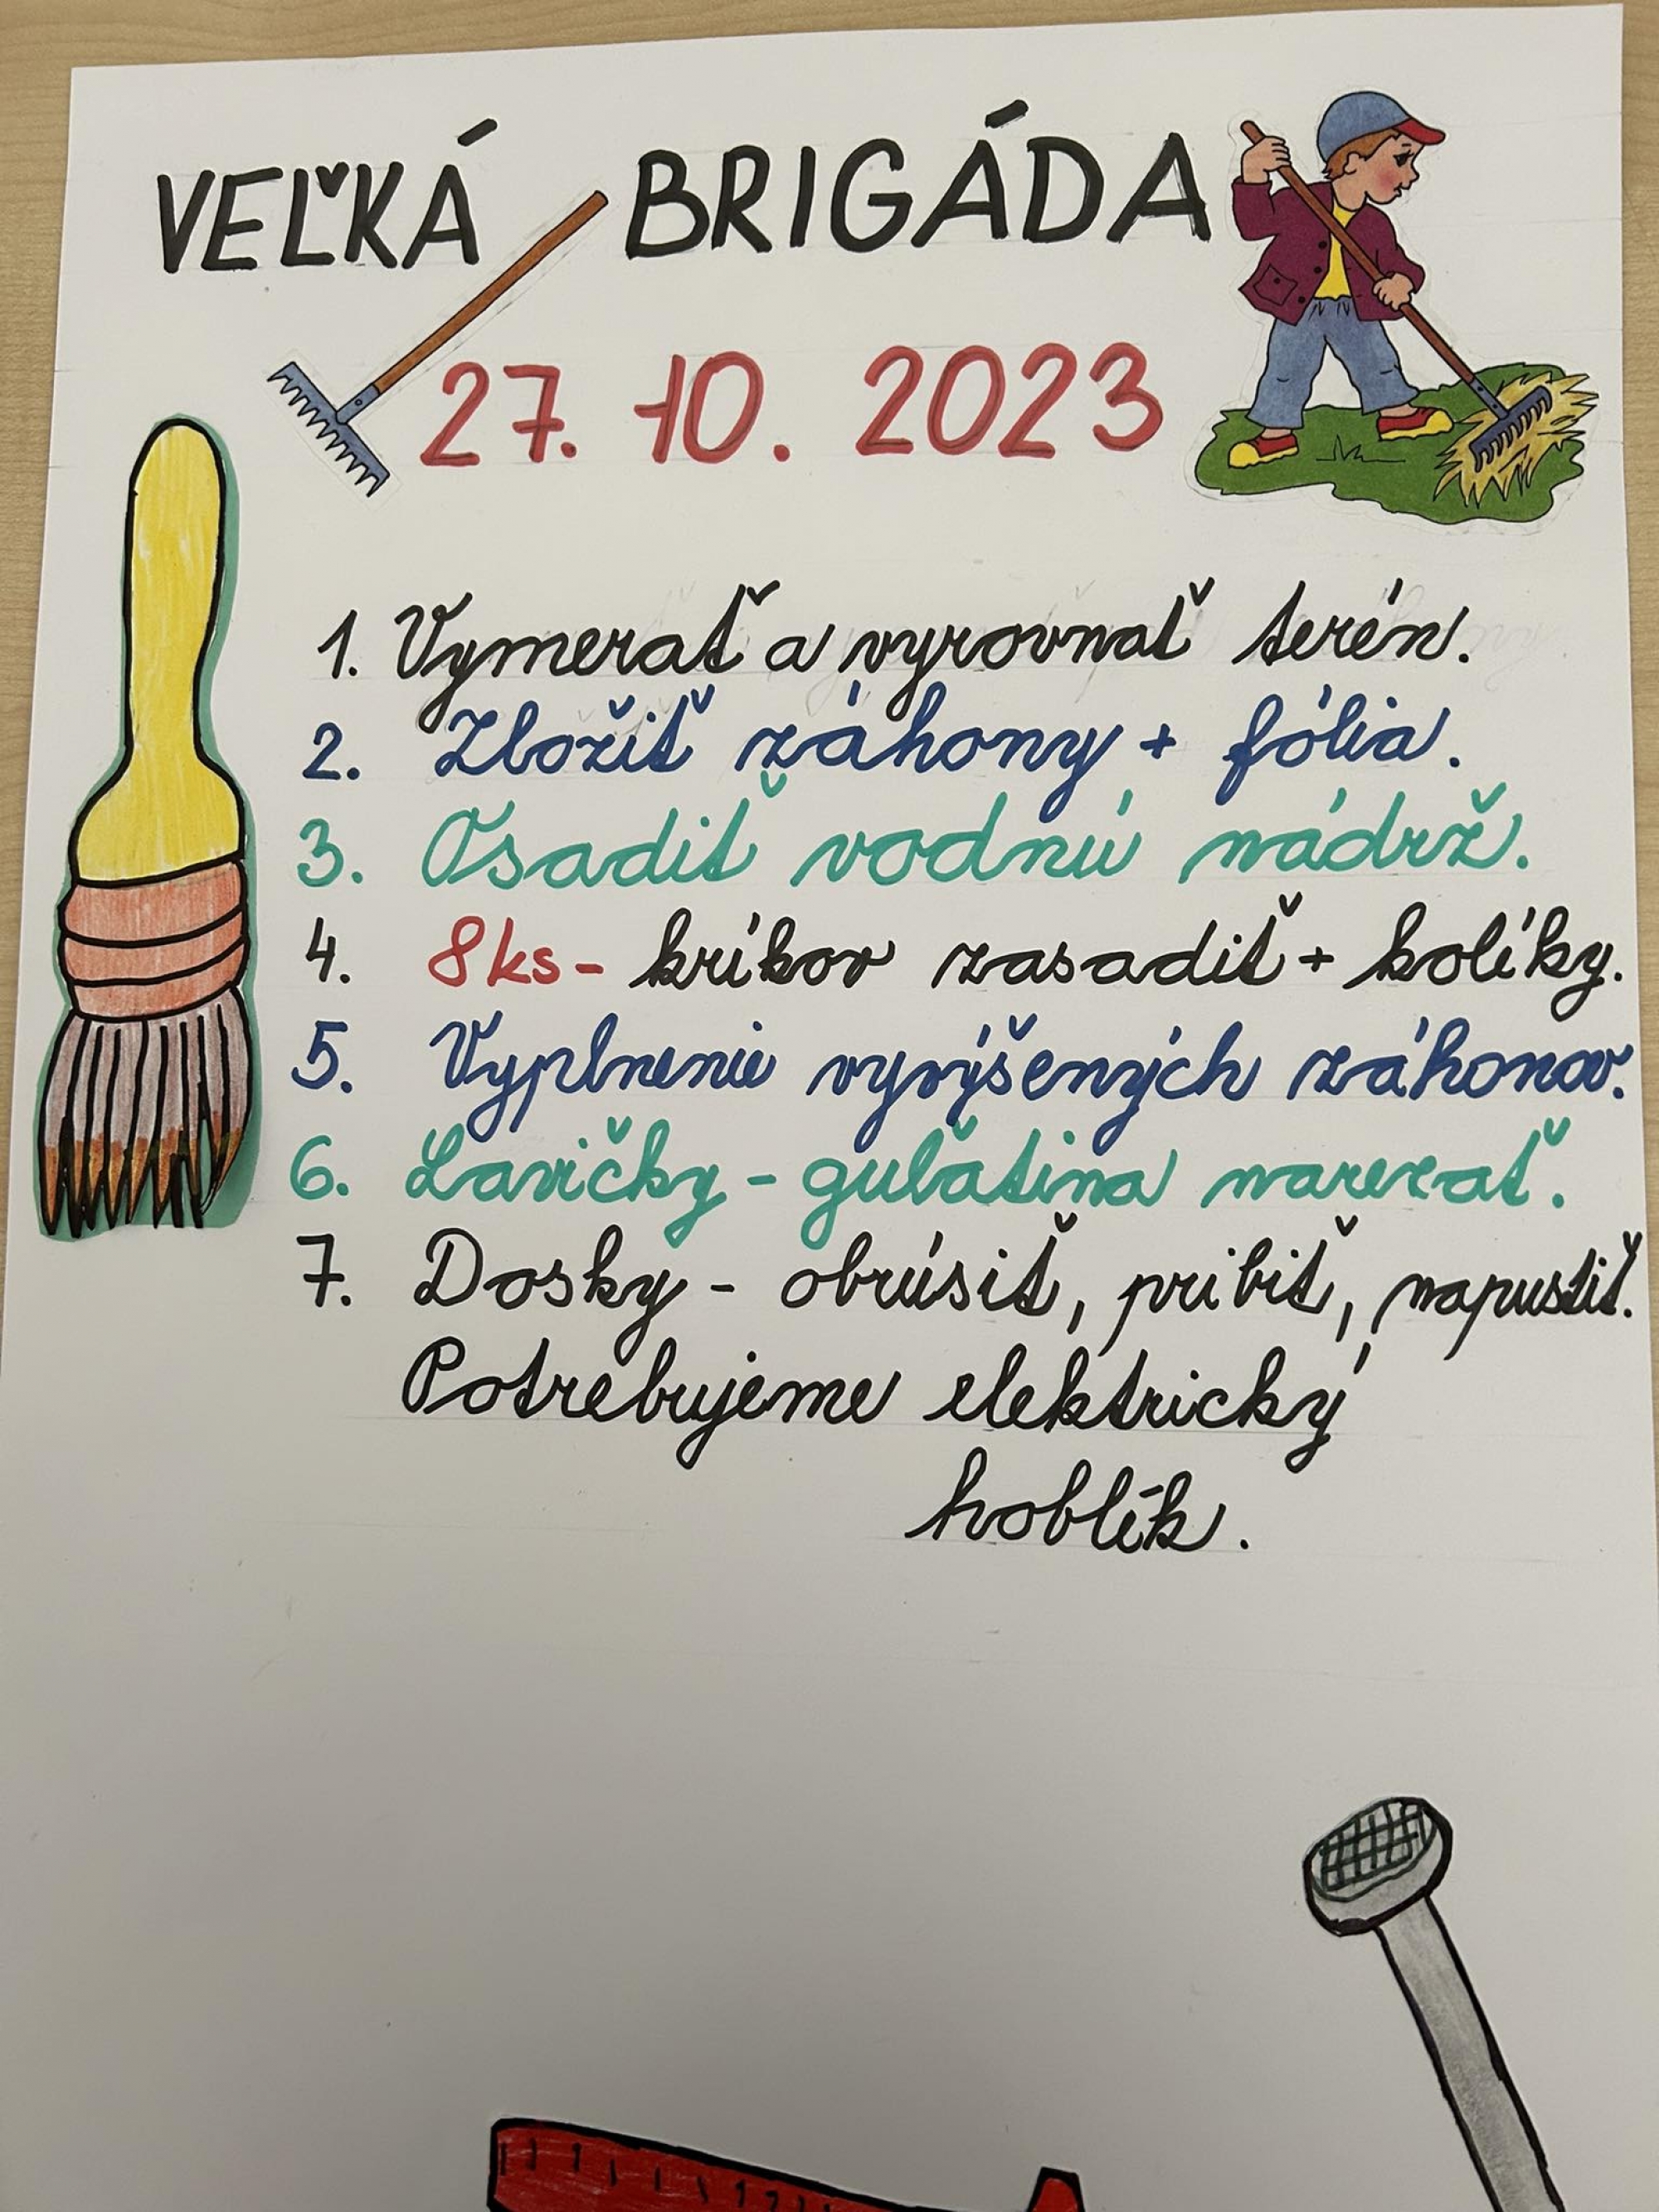 VEĽKÁ BRIGÁDA
27. 10. 2023
1. Vymerať a vyrovnať terén.
2. Zbožiť záhony + fólia.
3. Osadiť vodnú nádrž.
4. 8ks - kríkov zasadiť + kolíky.
5. Vyplnenie vyvýšených záhonov.
6. Lavičky - guľatina narezať.
7. Dosky - obrúsiť, pribiť, napustiť.
Potrebujeme elektrický
hoblík.